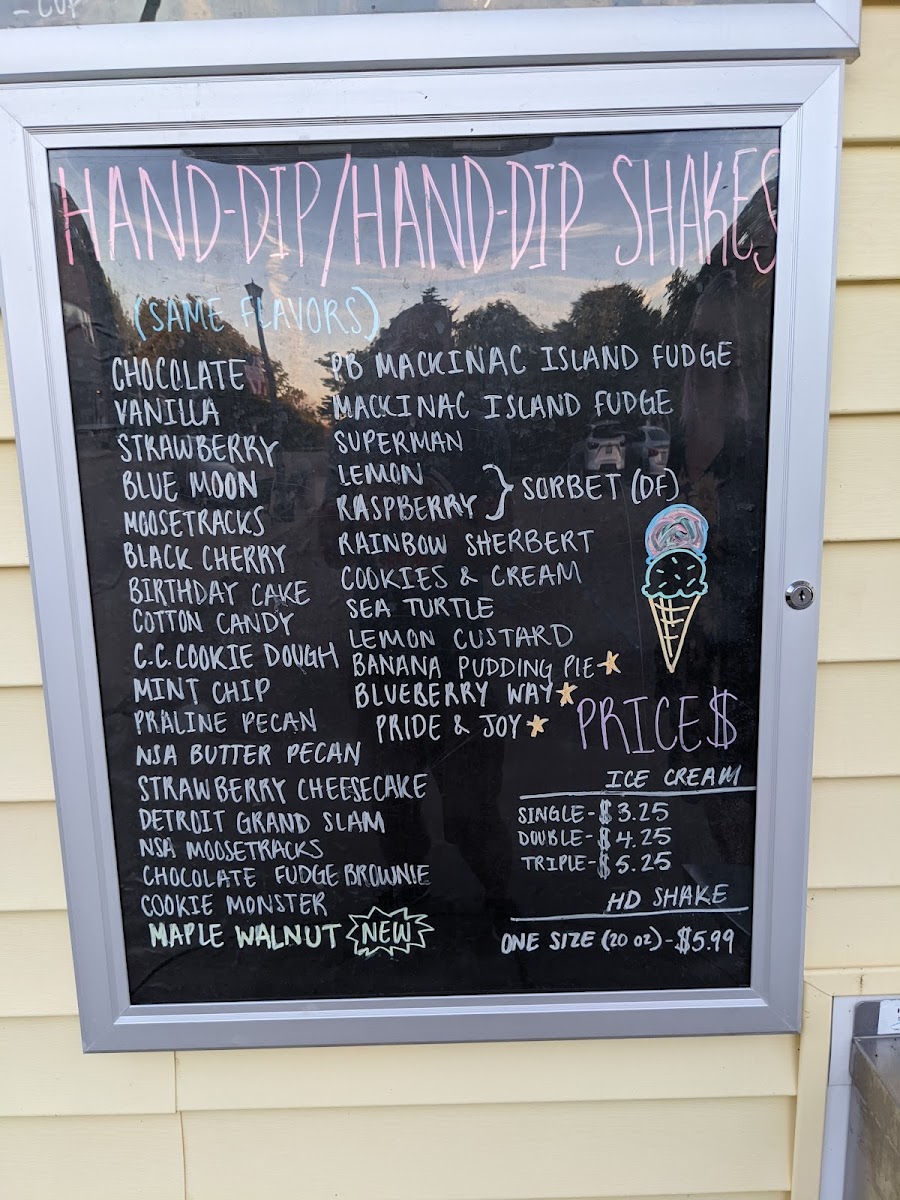 - CUP
HAND-DIP/HAND-DIP SHAKES
(SAME FLAVORS)
CHOCOLATE
VANILLA
STRAWBERRY
BLUE MOON
MOOSETRACKS
BLACK CHERRY
BIRTHDAY CAKE
COTTON CANDY
C.C. COOKIE DOUGH
MINT CHIP
PRALINE PECAN
NSA BUTTER PECAN
STRAWBERRY CHEESECAKE
DETROIT GRAND SLAM
NSA MOOSETRACKS
CHOCOLATE FUDGE BROWNIE
COOKIE MONSTER
MAPLE WALNUT NEW
PB MACKINAC ISLAND FUDGE
MACKINAC ISLAND FUDGE
SUPERMAN
LEMON
RASPBERRY } SORBET (DF)
RAINBOW SHERBERT
COOKIES & CREAM
SEA TURTLE
LEMON CUSTARD
BANANA PUDDING PIE ★
BLUEBERRY WAY ★
PRIDE & JOY ★
PRICE$
ICE CREAM
SINGLE - $3.25
DOUBLE - $4.25
TRIPLE - $5.25
HD SHAKE
ONE SIZE (20 OZ) - $5.99